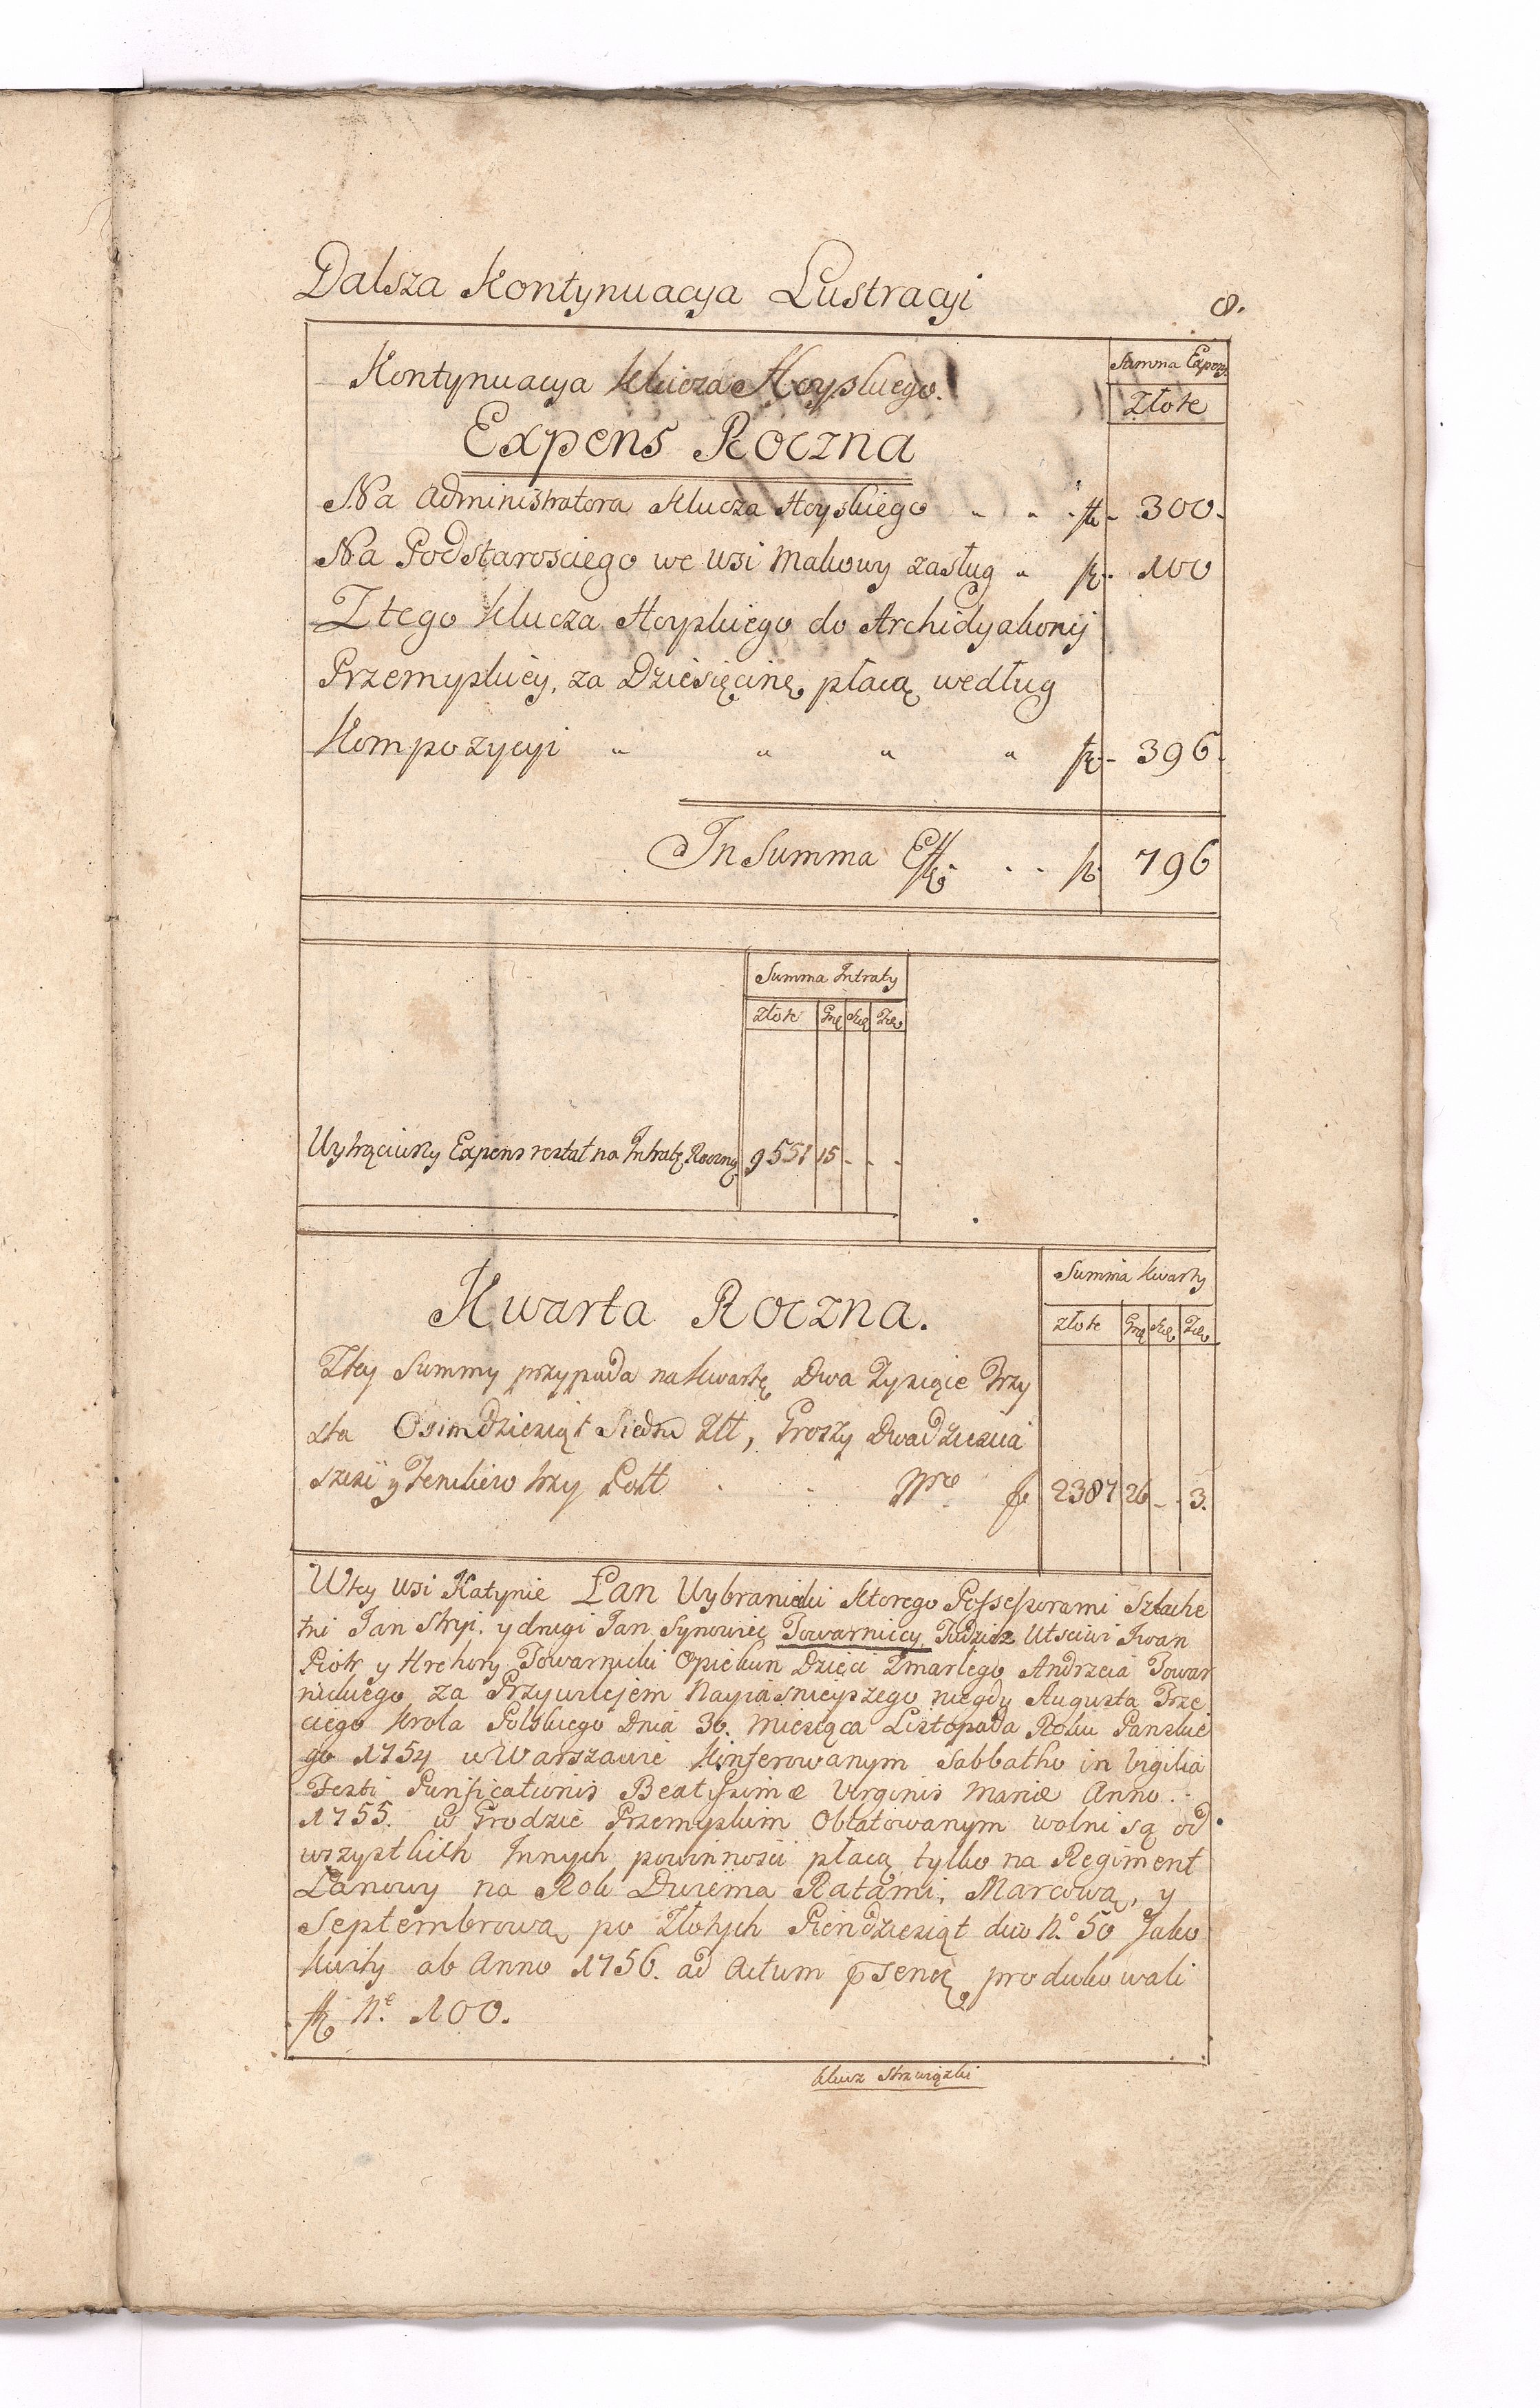 Dalsza Kontynuacya Lustracyi
8.
Kontynuacya Klucza Hoyskiego.
Summa Expens
Złote
Expens Roczna
Na Administratora Klucza Hoyskiego " " fl. 300.
Na Podstarosciego we wsi Makowy zasług " fl. 100
Z tego Klucza Hoyskiego do Archidyakonij
Przemyskiey, za Dziesięcinę płacą według
Kompozycyi " " " " fl. 396.
In Summa . . fl 796
Summa Intraty
Złote
Wytrąciwszy Expens restat na Intratę Roczną 9551 15 - - -
Kwarta Roczna.
Summa Kwarty
Złote
Ztey Summy przypada na Kwartę Dwa Tysiące Trzy
sta Osimdziesiąt Siedm Złł, Groszy Dwadziescia
szesc y Fenikow trzy Poll . . Nro fl 2387 26 - - 3.
Wtey wsi Katynie Łan Wybraniecki ktorego Possessorami Szlache
tni Jan Stryi. y drugi Jan Synowiec Towarniccy Tudzież Utsciwi Iwan
Piotr y Hrehory Towarnicki Opiekun Dzieci Zmarłego Andrzeia Towar
nickiego za Przywilejem Nayiasnieyszego niegdy Augusta Trze
ciego Krola Polskiego Dnia 30. Miesiąca Listopada Roku Panskie
go 1754 w Warszawie Konferowanym Sabbatho in Vigilia
Festi Purificationis Beatissimæ Virginis Mariæ Anno.
1755. w Grodzie Przemyskim Oblatowanym wolni są od
wszystkich Innych powinnosci płacą tylko na Regiment
Łanowy na Rok Dwiema Ratami, Marcową, y
Septembrową po Złotych Piendziesiąt duo N.o 50 Jako
kwity ab Anno 1756. ad Actum psentę produkowali
fl N.o 100.
Klucz Strzwiązki